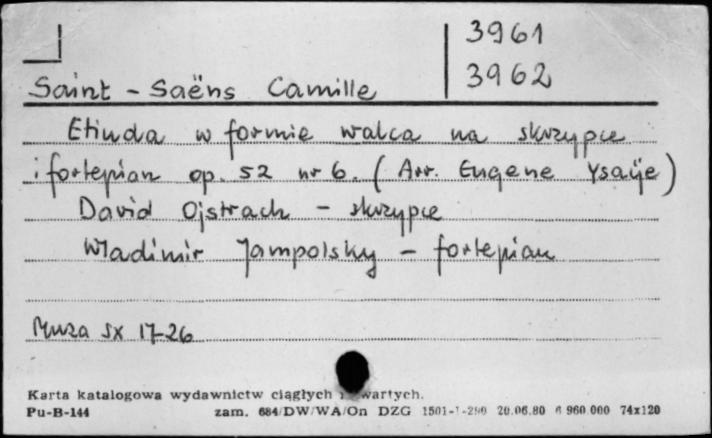 3961
3962
Saint-Saëns Camille
Etiuda w formie walca na skrzypce
i fortepian op. 52 nr 6. (Arr. Eugene Ysaÿe)
David Ojstrach - skrzypce
Władimir Jampolsky - fortepian
Muza SX 17-26
Karta katalogowa wydawnictw ciągłych i zwartych.
Pu-B-144 zam. 684/DW/WA/On DZG 20.06.80 6 960 000 74x120